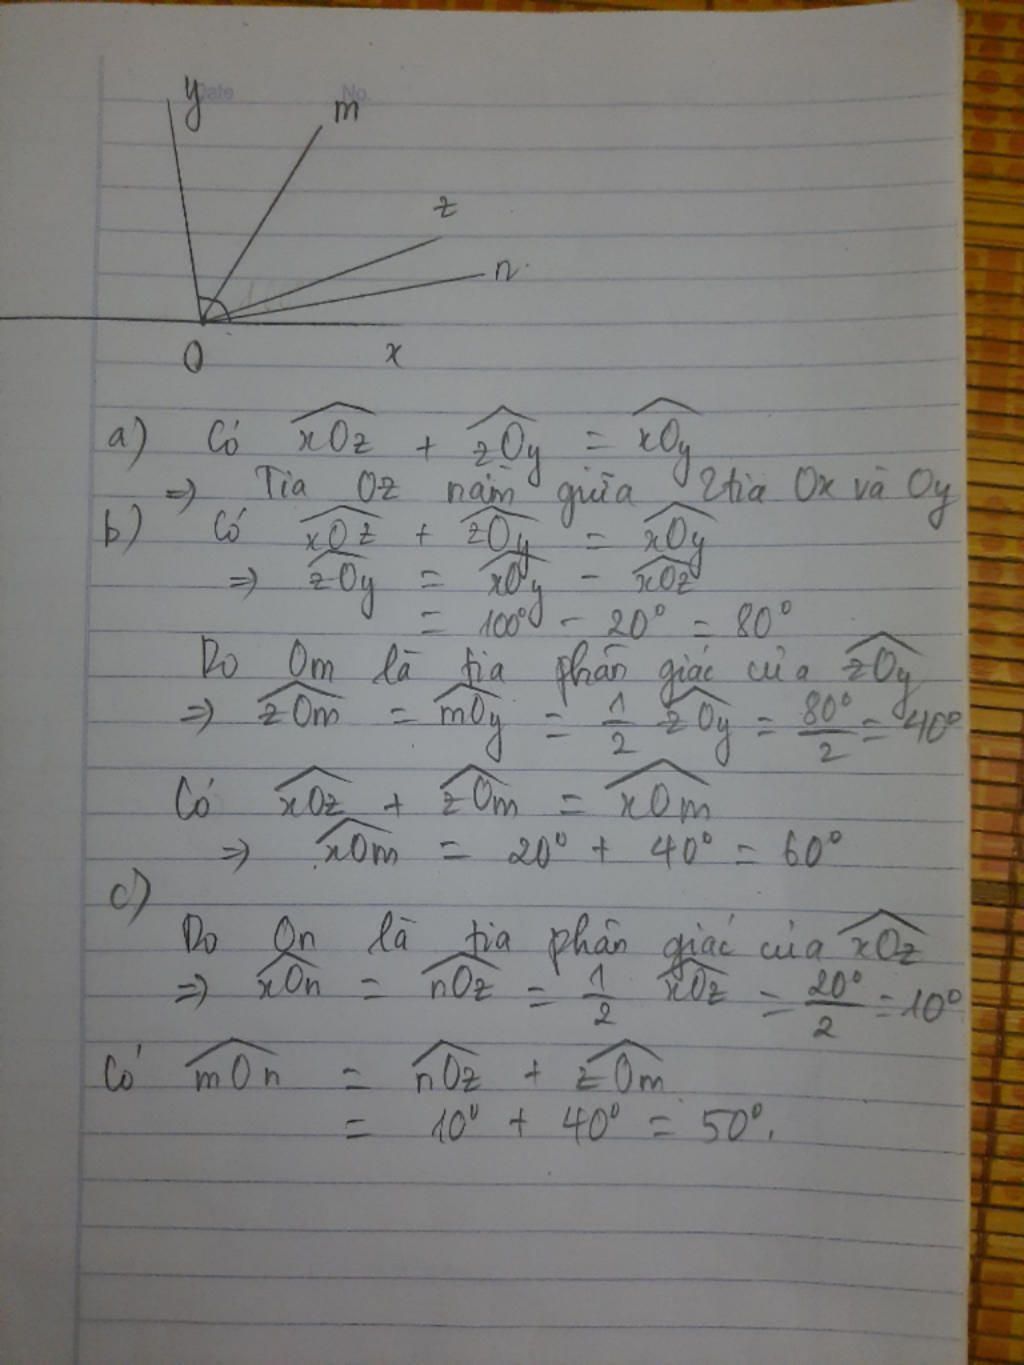 Date No.
y
m
z
n
O
x
a) Có xOz + zOy = xOy
=> Tia Oz nằm giữa 2 tia Ox và Oy
b) Có xOz + zOy = xOy
=> zOy = xOy - xOz
= 100° - 20° = 80°
Do Om là tia phân giác của zOy
=> zOm = mOy = 1/2 zOy = 80°/2 = 40°
Có xOz + zOm = xOm
=> xOm = 20° + 40° = 60°
c)
Do On là tia phân giác của xOz
=> xOn = nOz = 1/2 xOz = 20°/2 = 10°
Có mOn = nOz + zOm
= 10° + 40° = 50°.